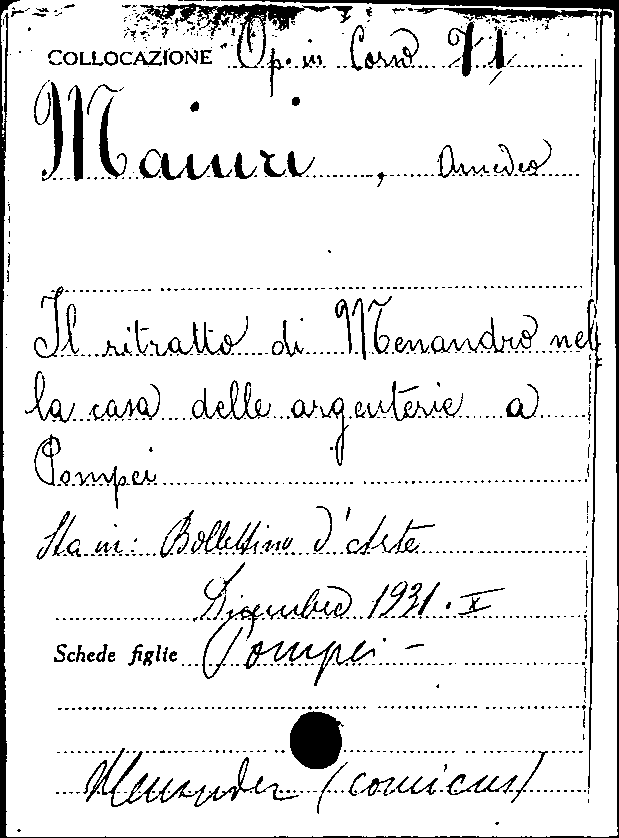 COLLOCAZIONE Op. in Corso 71
Maiuri, Amedeo
Il ritratto di Menandro nel
la casa delle argenterie a
Pompei
Sta in: Bollettino d'Arte
Dicembre 1931. X
Schede figlie Pompei -
Menander (comicus)